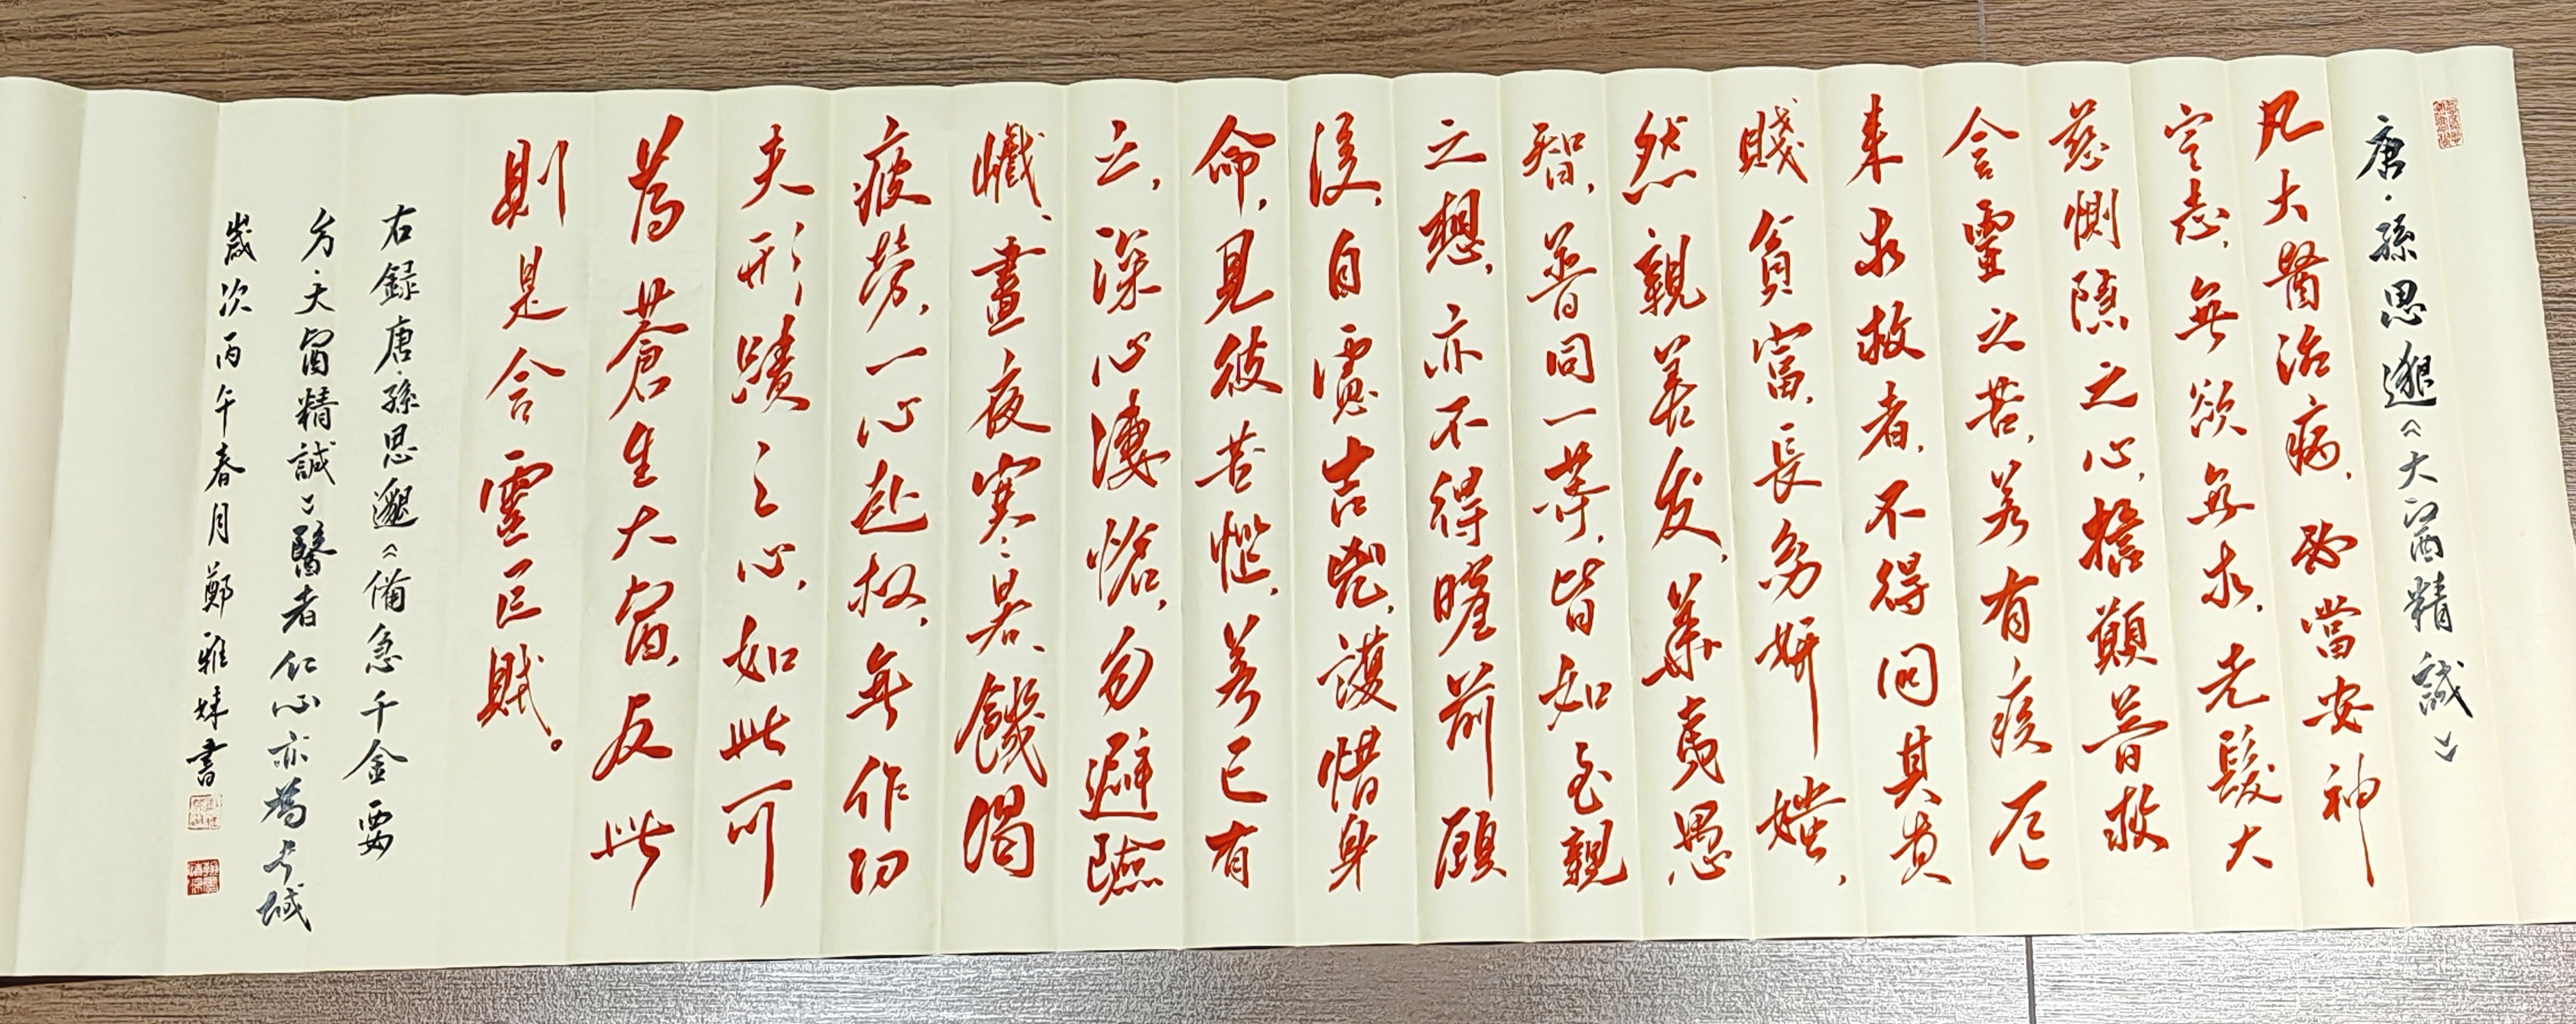 唐·孫思邈《大醫精誠》
凡大醫治病，必當安神
定志，無欲無求，先發大
慈惻隱之心，誓願普救
含靈之苦，若有疾厄
來求救者，不得問其貴
賤貧富，長幼妍媸，
怨親善友，華夷愚
智，普同一等，皆如至親
之想，亦不得瞻前顧
後，自慮吉兇，護惜身
命，見彼苦惱，若己有
之，深心悽愴，勿避險
巇、晝夜寒暑、饑渴
疲勞，一心赴救，無作功
夫形蹟之心，如此可
為蒼生大醫，反此
則是含靈巨賊。
右録唐·孫思邈《備急千金要
方·大醫精誠》醫者仁心亦為
歲次丙午春月鄭雅妹書